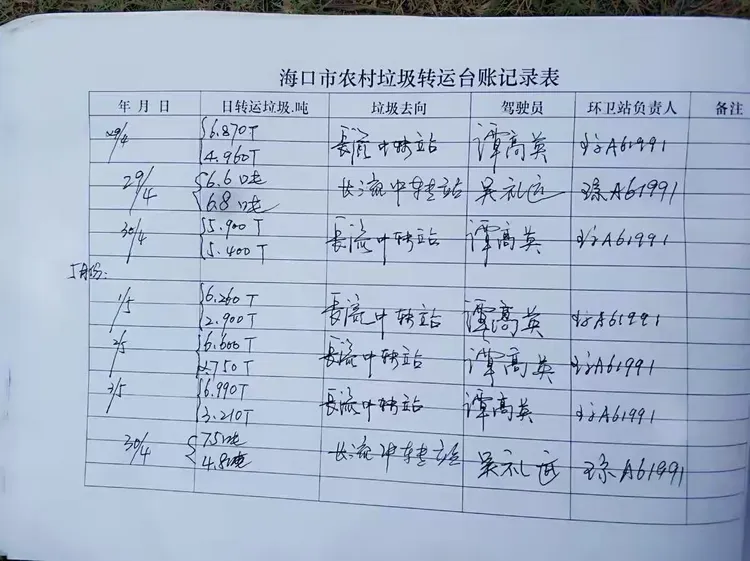 海口市农村垃圾转运台账记录表
年 月 日 日转运垃圾.吨 垃圾去向 驾驶员 环卫站负责人 备注
29/4 6.870T 長流中转站 谭高英 琼A61991
4.960T
29/4 6.6吨 长流中转站 吴礼远 琼A61991
6.8吨
30/4 5.900T 長流中转站 谭高英 琼A61991
5.400T
5月份:
1/5 6.260T 長流中转站 谭高英 琼A61991
2.900T
2/5 6.600T 長流中转站 谭高英 琼A61991
.750T
3/5 6.990T 長流中转站 谭高英 琼A61991
3.210T
30/4 7.5吨 长流中转站 吴礼远 琼A61991
4.8吨